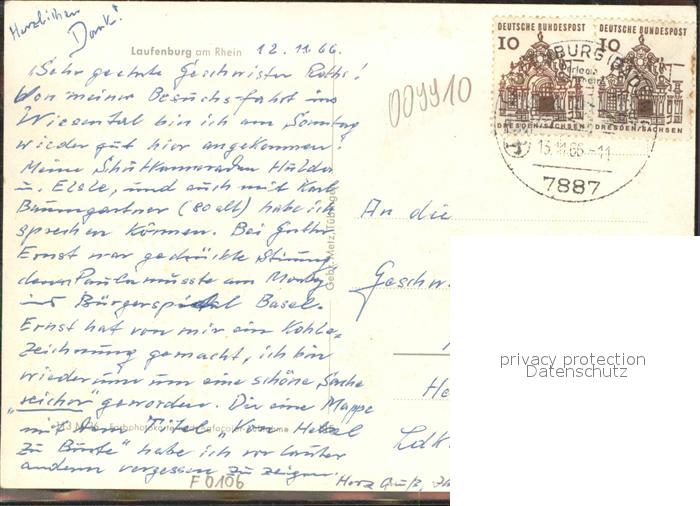 Herzlichen
Dank!
Laufenburg am Rhein
12.11.66.
Sehr geehrte Geschwister Roths!
Von meiner Besuchsfahrt ins
Wiesental bin ich am Sonntag
wieder gut hier angekommen!
Meine Schulkameraden Hulda
u. Elsle, und auch mit Karl
Baumgartner (80 alt) habe ich
sprechen können. Bei
Ernst war gedrückte Stimmung
denn Paula musste am Montag
ins Bürgerspital Basel.
Ernst hat von mir eine Kohle-
zeichnung gemacht, ich bin
wiederum um eine schöne Sache
"reicher" geworden. Die eine Mappe
mit dem Titel "Von Hebel
zu Burte" habe ich vor lauter
andern vergessen zu zeigen.
Herz. Gruß,
F 0106
Gebr. Metz, Tübingen
009910
DEUTSCHE BUNDESPOST
10
DRESDEN/SACHSEN
DEUTSCHE BUNDESPOST
10
DRESDEN/SACHSEN
15.11.66-11
7887
An die
Geschw
He
Ldk.
privacy protection
Datenschutz